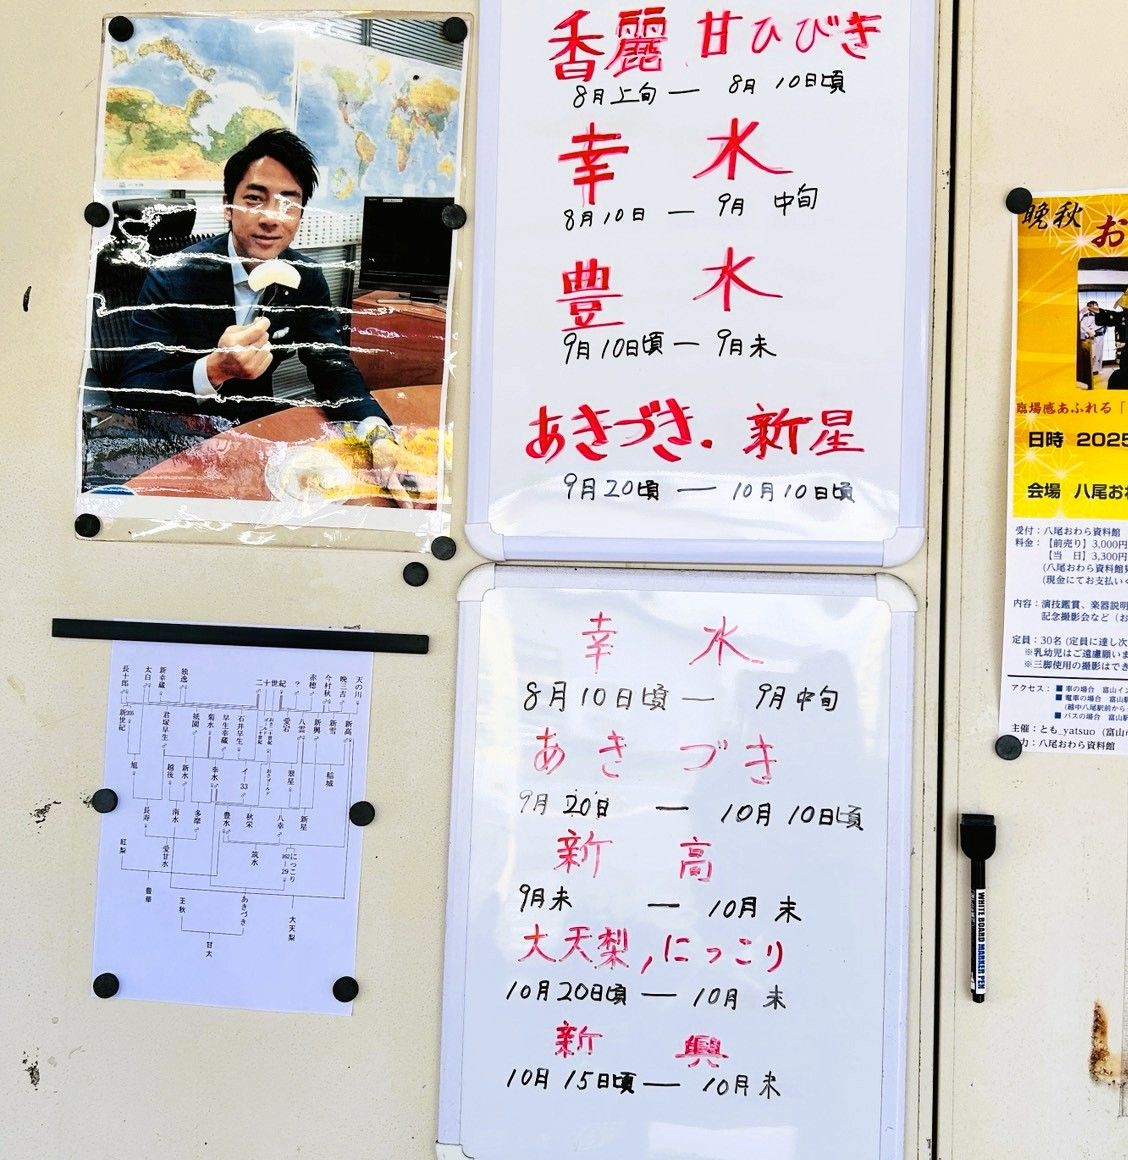 香麗 甘ひびき
8月上旬 ― 8月10日頃
幸水
8月10日 ― 9月中旬
豊水
9月10日頃 ― 9月末
あきづき.新星
9月20頃 ― 10月10日頃
幸水
8月10日頃 ― 9月中旬
あきづき
9月20日 ― 10月10日頃
新高
9月末 ― 10月末
大天梨,にっこり
10月20日頃 ― 10月末
新興
10月15日頃 ― 10月末
長十郎
太白
新幸蔵
独逸
二十世紀
?
赤穂
今村秋
晩三吉
天の川
新世紀
君塚早生
祇園
菊水
早生幸蔵
石井早生
愛宕
八雲
新興
新雪
新高
旭
越後
新水
幸水
イ-33
翠星
稲城
長寿
南水
多摩
豊水
秋栄
八幸
新星
紅梨
愛甘水
筑水
162-29
にっこり
豊華
王秋
あきづき
大天梨
甘太
晩秋
お
臨場感あふれる「
日時 2025
会場 八尾おわ
受付:八尾おわら資料館
料金:【前売り】3,000円
【当 日】3,300円
(八尾おわら資料館
(現金にてお支払い
内容:演技鑑賞、楽器説明
記念撮影会など(お
定員:30名(定員に達し次
※乳幼児はご遠慮願いま
※三脚使用の撮影はでき
アクセス:■車の場合 富山イン
■電車の場合 富山駅
(越中八尾駅前から
■バスの場合 富山駅
主催:とも_yatsuo(富山市
力:八尾おわら資料館
WHITE BOARD MARKER PEN